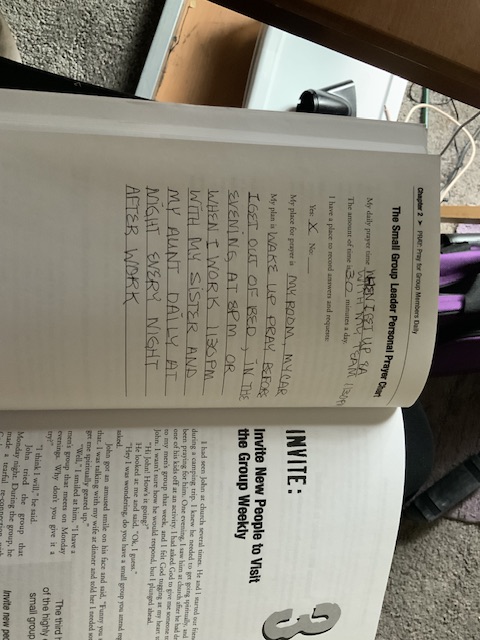 Chapter 2 > PRAY: Pray for Group Members Daily
The Small Group Leader Personal Prayer Chart
My daily prayer time WHEN I GET UP 9A
WITH MY TEAM 1130PM
The amount of time 30 minutes a day.
I have a place to record answers and requests:
Yes: X No:
My place for prayer is MY ROOM, MY CAR
My plan is WAKE UP PRAY BEFORE
I GET OUT OF BED, IN THE
EVENING AT 8PM OR
WHEN I WORK 1130PM
WITH MY SISTER AND
MY AUNT DAILY AT
NIGHT EVERY NIGHT
AFTER WORK
3
INVITE:
Invite New People to Visit
the Group Weekly
I had seen John at church several times. He and I started our
during a camping trip. I knew he needed to get going spiritually, and
been praying for him. One evening, I saw him at church after he had
one of his kids off at an activity. I had asked God to give me someone
to my men's group that week, and I felt God tugging at my heart
John. I wasn't sure how he would respond, but I plunged ahead.
"Hi John! How's it going?"
He looked at me and said, "Ok, I guess."
"Hey I was wondering, do you have a small group you attend
asked.
John got an amused smile on his face and said, "Funny you
that. I was talking with my wife at dinner and told her I needed
get me spiritually geared up."
"Well," I smiled at him, "I have a
men's group that meets on Monday
evenings. Why don't you give it a
try?"
"I think I will," he said.
John tried the group that
Monday night. During the group, he
made a tearful
The third
of the highly
small group
Invite new pe